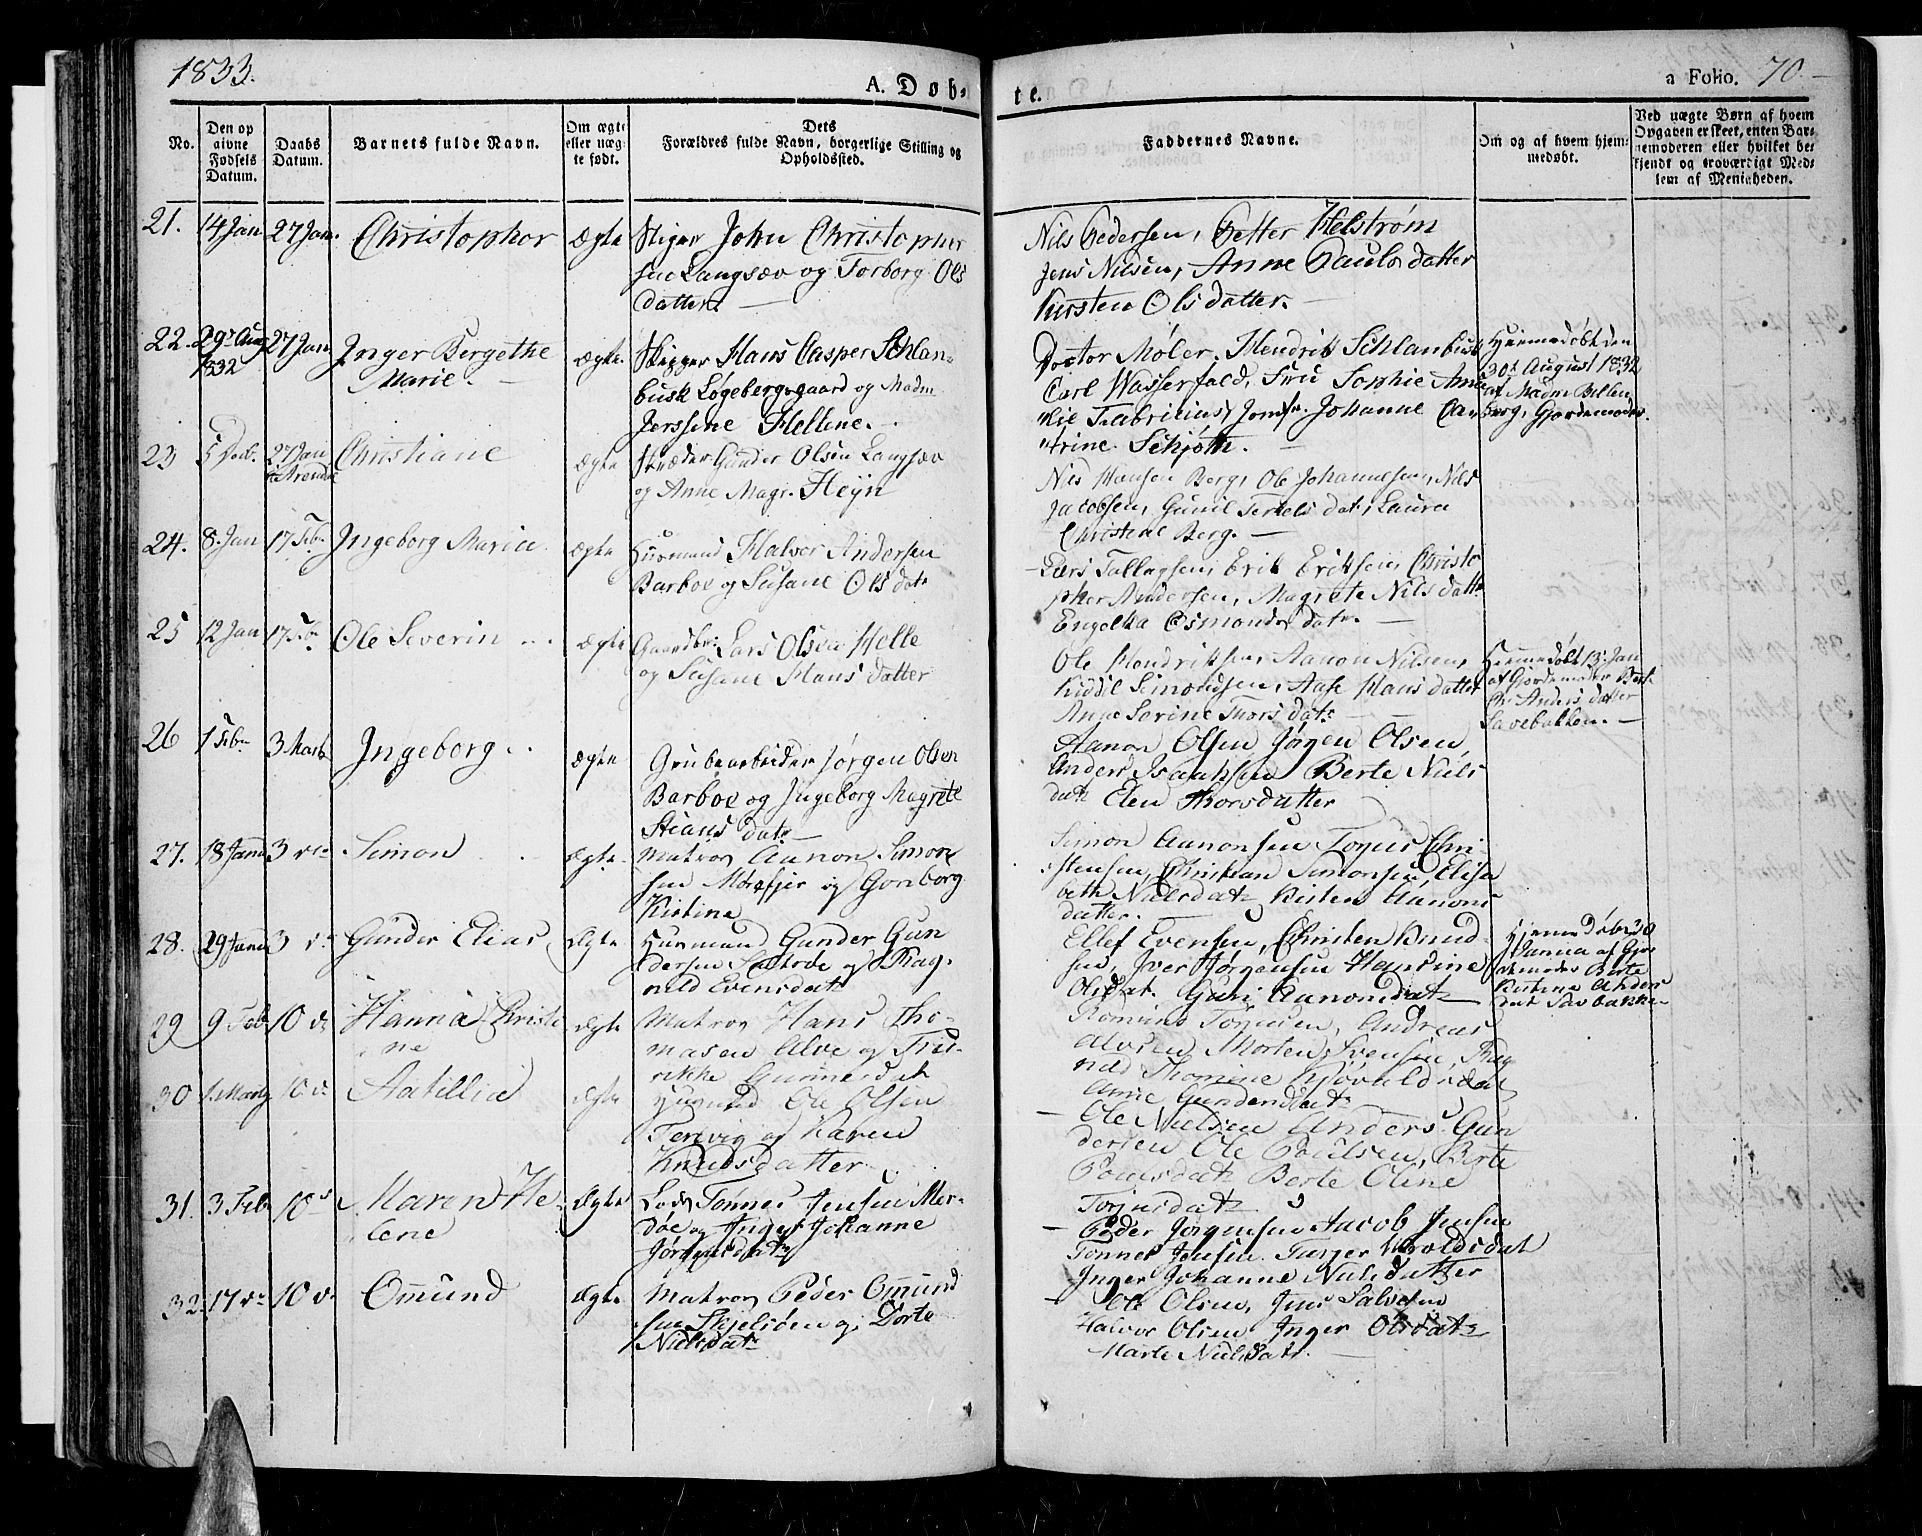 1833.
A. Døb-
te.
a Folio. 70.
No.
Den op
givne
Fødsels
Datum.
Daabs
Datum.
Barnets fulde Navn.
Om ægte
eller uæg-
te født.
Dets
Forældres fulde Navn, borgerlige Stilling og
Opholdssted.
Faddernes Navne.
Om og af hvem hjem-
medøbt.
Ved uægte Børn af hvem
Opgaven er skeet, enten Bar-
nemoderen eller hvilket be-
kjendt og troværdigt Med-
lem af Menigheden.
21. 14 Jan 27 Jan. Christopher ægte Stiger John Christopher
sen Langsæv og Torborg Ols
datter.
Nils Pedersen, Petter Helstrøm
Jens Nilsen, Anne Pauls datter
Kirsten Olsdatter.
22. 29 Aug 1832 27 Jan Inger Bergethe
Marie. ægte. Skipper Hans Casper Schlan-
busk Løgebergsgaard og Madm
Jerssine Hellene.
Doctor Møler. Hendrik Schlanbusk
Carl Wasserfald, Fru Sophie Ama
lie Fabricius, Jomfr. Johanne Ca
trine Schjøth.
Hjemmedøbt den
30 August 1832
af Madm Billen
berg, Gjordemoder.
23 5 Decb. 27 Jan
Christiane ægte Skræder Gunder Olsen Langsæv
og Anne Magr. Heyn
Nils Hansen Berg, Ole Johannesen, Nils
Jacobsen, Gunil Terkels dat, Laura
Christine Berg.
24. 8 Jan 17 Feb Ingeborg Maria ægte Huusmand Halvor Andersen
Barboe og Susane Ols dat
Lars Tallagsen, Erik Eriksen, Christo
pher Andersen, Magrete Nils datt
Engelka Osmonds dat.
25 12 Jan 17 Feb Ole Severin ægte Gaardbr. Lars Olsen Helle
og Susane Hans datter
Ole Hendriksen, Aanon Nilsen,
Kiddil Simondsen, Aase Hans datter
Anne Serine Thors dat
Hjemmedøbt 13 Jan
af Gjordemoder Bert
Kr. Anders datter
Savebakken.
26 1 Feb 3 Marts Ingeborg. ægte Grubearbeider Jørgen Olsen
Barboe og Ingeborg Magrete
Stians dat
Aanon Olsen, Jørgen Olsen,
Anders Isaaksen Berte Niels
dat Elen Thorsdatter
27. 18 Janu 3 Simon ægte Matros Aanon Simon
sen Mørefjer og Gonborg
Kistine
Simon Aanonsen Tonnes Chri-
stensen, Christian Simonsen, Elisa
beth Nielsdat Kirsten Aanons
datter.
28. 29 Janu 3 Gunder Elias Ægte Husmand Gunder Gun
dersen Sætroe og Rag-
nild Evensdat
Ellef Evensen, Christen Knud-
sen, Iver Jørgensen Handine
Olsdat. Guri Aanonsdat
Hjemmedøbt 30
Janua af Gjor
demoder Berte
Kistine Anders
dat Savbakke
29 9 Feb 10 Hanna Christi
ne Ægte Matros Hans Tho-
masen Alve og Fri-
rikke Gunnersdat
Romund Torjusen, Andreas
Alvsen Morten Svensen, Rag
nild Thomine Kjøvaldsdat
Anne Gundersdat
30 1 10 Aatillia Ægte Husmand Ole Olsen
Tervig og Karen
Knudsdatter
Ole Nielsen Anders Gun
dersen Ole Poulsen, Berte
Poulsdat Berte Oline
Torjusdat
31. 3 Feb 10 Maren He
lene Ægte Lods Tønnes Jensen Mer-
doe og Inger Johanne
Jørgensdat
Peder Jørgensen Jacob Jensen
Tønnes Jensen. Turger Haroldsdat
Inger Johanne Nielsdatter
32. 17 10 Omund Ægte Matros Peder Omund
sen Skjelsøen og Dorte
Nielsdat
Ole Olsen, Jens Salvesen
Halvor Olsen Inger Olsdat
Marte Nielsdat.